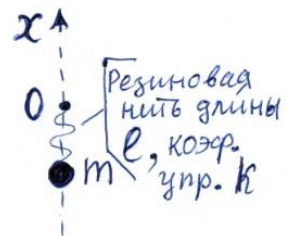 x
Резиновая
0
нить длины
m
ℓ, коэф.
упр. k